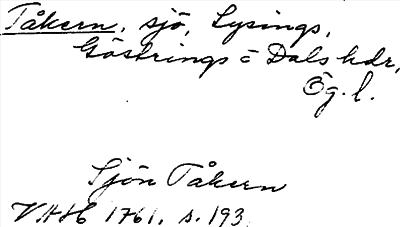 Tåkern, sjö, Lysings,
Göstrings o Dals hdr,
Ög. l.
Sjön Tåkern
VAH 1761. s. 193.